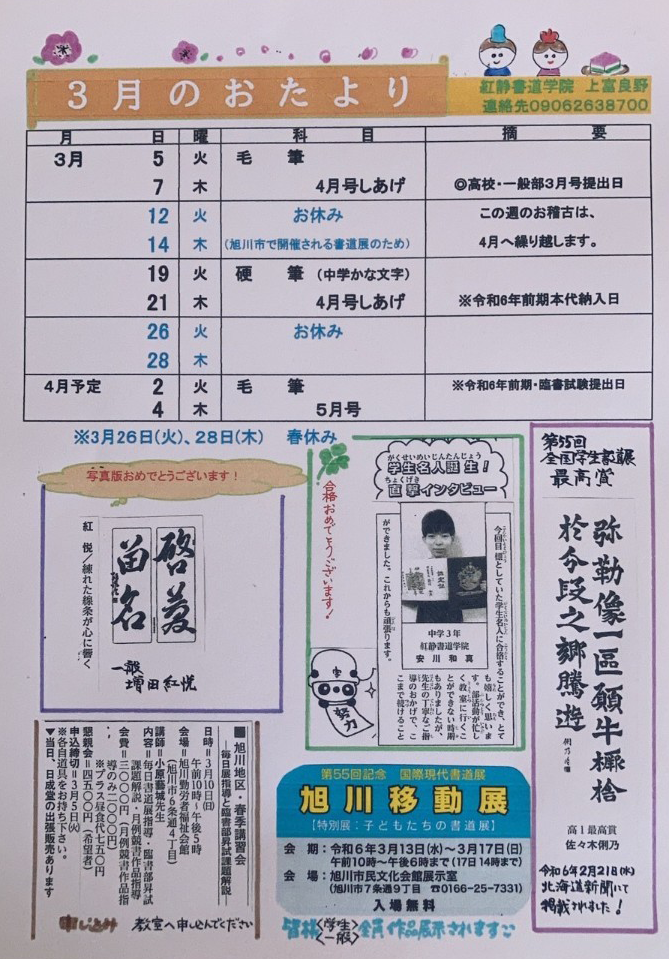 3月のおたより
紅静書道学院 上富良野
連絡先09062638700
月 日 曜 科 目 摘 要
3月 5 火 毛 筆
7 木 4月号しあげ ◎高校・一般部3月号提出日
12 火 お休み この週のお稽古は、
14 木 (旭川市で開催される書道展のため) 4月へ繰り越します。
19 火 硬 筆 (中学かな文字)
21 木 4月号しあげ ※令和6年前期本代納入日
26 火 お休み
28 木
4月予定 2 火 毛 筆 ※令和6年前期・臨書試験提出日
4 木 5月号
※3月26日(火)、28日(木) 春休み
写真版おめでとうございます！
紅 悦／練れた線条が心に響く
一般
増田紅悦
合格おめでとうございます！
がくせいめいじんたんじょう
学生名人誕生！
ちょくげき
直撃インタビュー
今回目標としていた学生名人に合格することができ、とて
も嬉しく思いま
す。部活動が忙し
く、教室に行くこ
とができない時期
もありましたが、
先生の丁寧なご指
導のおかげで、こ
こまで続けること
ができました。これからも頑張ります。
中学3年
紅静書道学院
安川和真
努力
第55回
全国学生書道展
最高賞
弥勒像一區願牛橛捨
於今段之鄉騰遊
高1最高賞
佐々木俐乃
令和6年2月21日(水)
北海道新聞にて
掲載されました！
■旭川地区・春季講習会
―毎日展指導と臨書部昇試課題解説―
日時＝3月10日(日)
午前10時～午後5時
会場＝旭川勤労者福祉会館
(旭川市6条通4丁目)
講師＝小原藝城先生
内容＝毎日書道展指導・臨書部昇試
課題解説・月例競書作品指導
会費＝三〇〇〇円(月例競書作品指
導のみ二〇〇〇円)
※プラス昼食代七五〇円
懇親会＝四五〇〇円(希望者)
申込締切＝3月5日(火)
※各自道具をお持ち下さい。
▼当日、日成堂の出張販売あります
申し込み 教室へ申し込んでください
第55回記念 国際現代書道展
旭川移動展
【特別展：子どもたちの書道展】
会 期：令和6年3月13日(水)～3月17日(日)
午前10時～午後6時まで(17日14時まで)
会 場：旭川市民文化会館展示室
(旭川市7条通9丁目 ☎0166-25-7331)
入場無料
皆様〈学生 一般〉全員作品展示されます